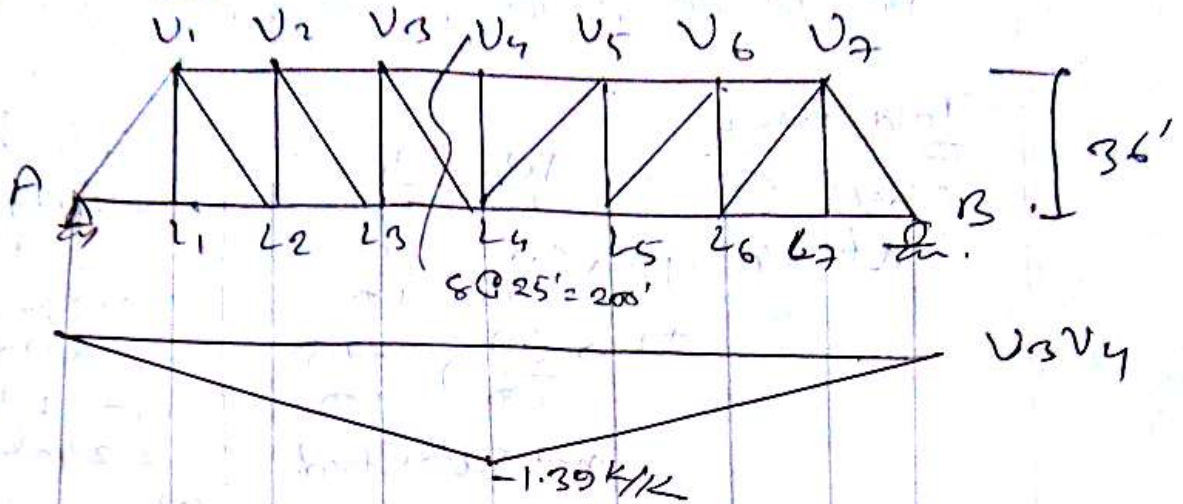 U1 U2 U3 U4 U5 U6 U7
36'
A B
L1 L2 L3 L4 L5 L6 L7
8@25'=200'
U3U4
-1.39 K/K